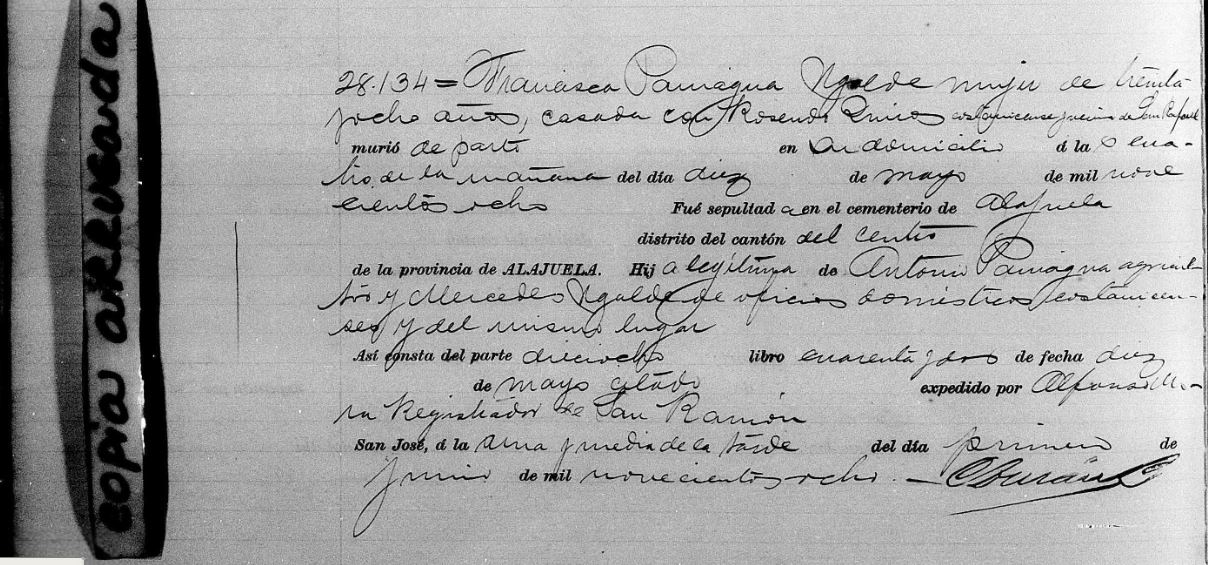 copia arrugada
28.134 = Francisca Paniagua Ugalde mujer de treinta
y ocho años, casada con Rosendo Quiros costarricense y vecina de San Rafael
murió de parto en su domicilio á la s cua-
tro de la mañana del día diez de mayo de mil nove
cientos ocho Fué sepultad a en el cementerio de Alajuela
distrito del cantón del centro
de la provincia de ALAJUELA. Hij a legítima de Antonio Paniagua agricul-
tor y Mercedes Ugalde de oficios domésticos, costarricen-
ses y del mismo lugar
Así consta del parte dieciocho libro cuarenta y dos de fecha diez
de mayo citado expedido por Alfonso
Registrador de San Ramón
San José, á la una y media de la tarde del día primero de
junio de mil novecientos ocho. –